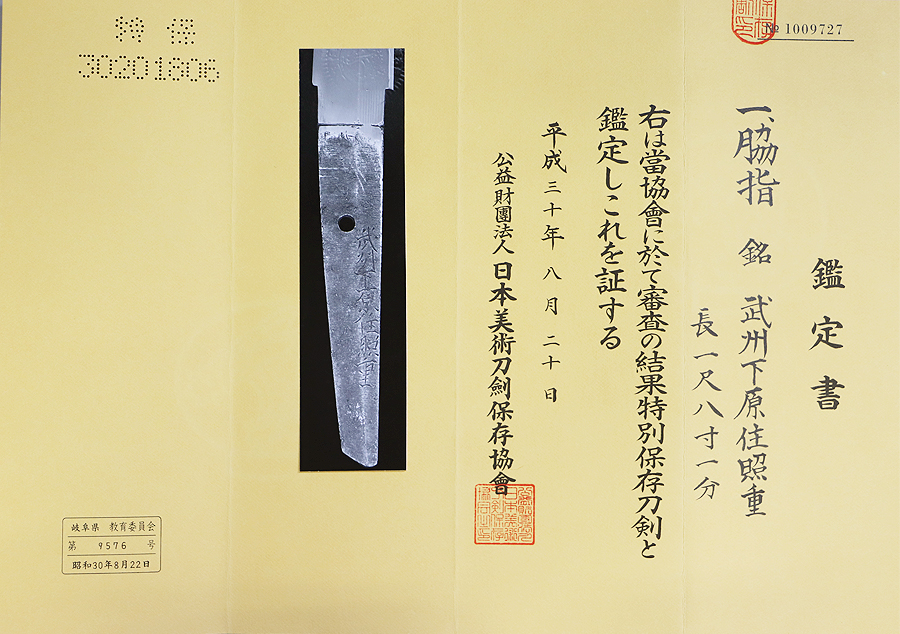 № 1009727
鑑定書
一、脇指 銘 武州下原住照重
長一尺八寸一分
右は當協會に於て審査の結果特別保存刀剣と
鑑定しこれを証する
平成三十年八月二十日
公益財團法人 日本美術刀劍保存協會
武州下原住照重
特 保
30201606
岐阜県 教育委員会
第 9576 号
昭和30年8月22日